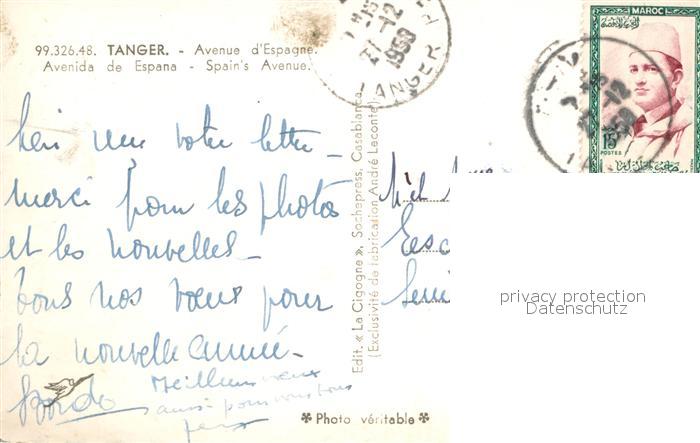 99.326.48. TANGER. - Avenue d'Espagne.
Avenida de Espana - Spain's Avenue.
bien reçu votre lettre -
merci pour les photos
et les nouvelles -
tous nos vœux pour
la nouvelle année -
Meilleurs vœux
aussi pour vous tous
Edit. « La Cigogne », Sochepress, Casablanca
(Exclusivité de fabrication André Leconte)
✽ Photo véritable ✽
27-12
TANGER
MAROC
15F
POSTES
privacy protection
Datenschutz